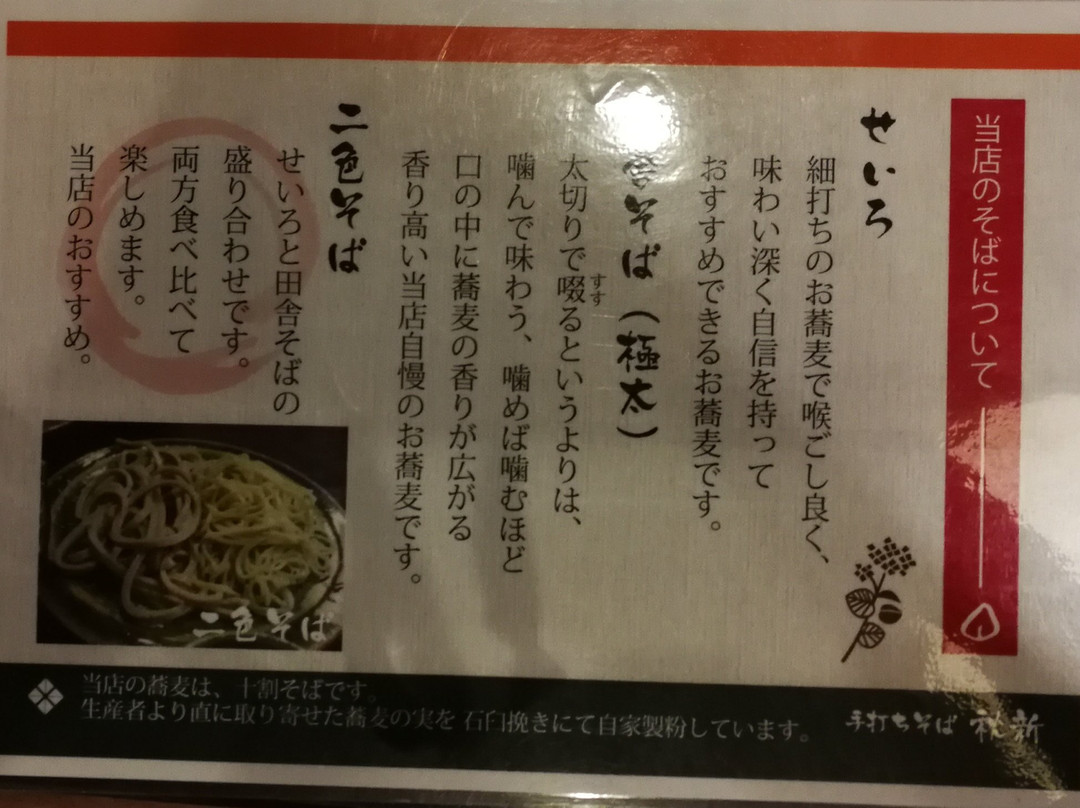 当店のそばについて
せいろ
細打ちのお蕎麦で喉ごし良く、
味わい深く自信を持って
おすすめできるお蕎麦です。
そば（極太）
太切りで啜るというよりは、
すす
噛んで味わう、噛めば噛むほど
口の中に蕎麦の香りが広がる
香り高い当店自慢のお蕎麦です。
二色そば
せいろと田舎そばの
盛り合わせです。
両方食べ比べて
楽しめます。
当店のおすすめ。
二色そば
当店の蕎麦は、十割そばです。
生産者より直に取り寄せた蕎麦の実を 石臼挽きにて自家製粉しています。
手打ちそば 秋新